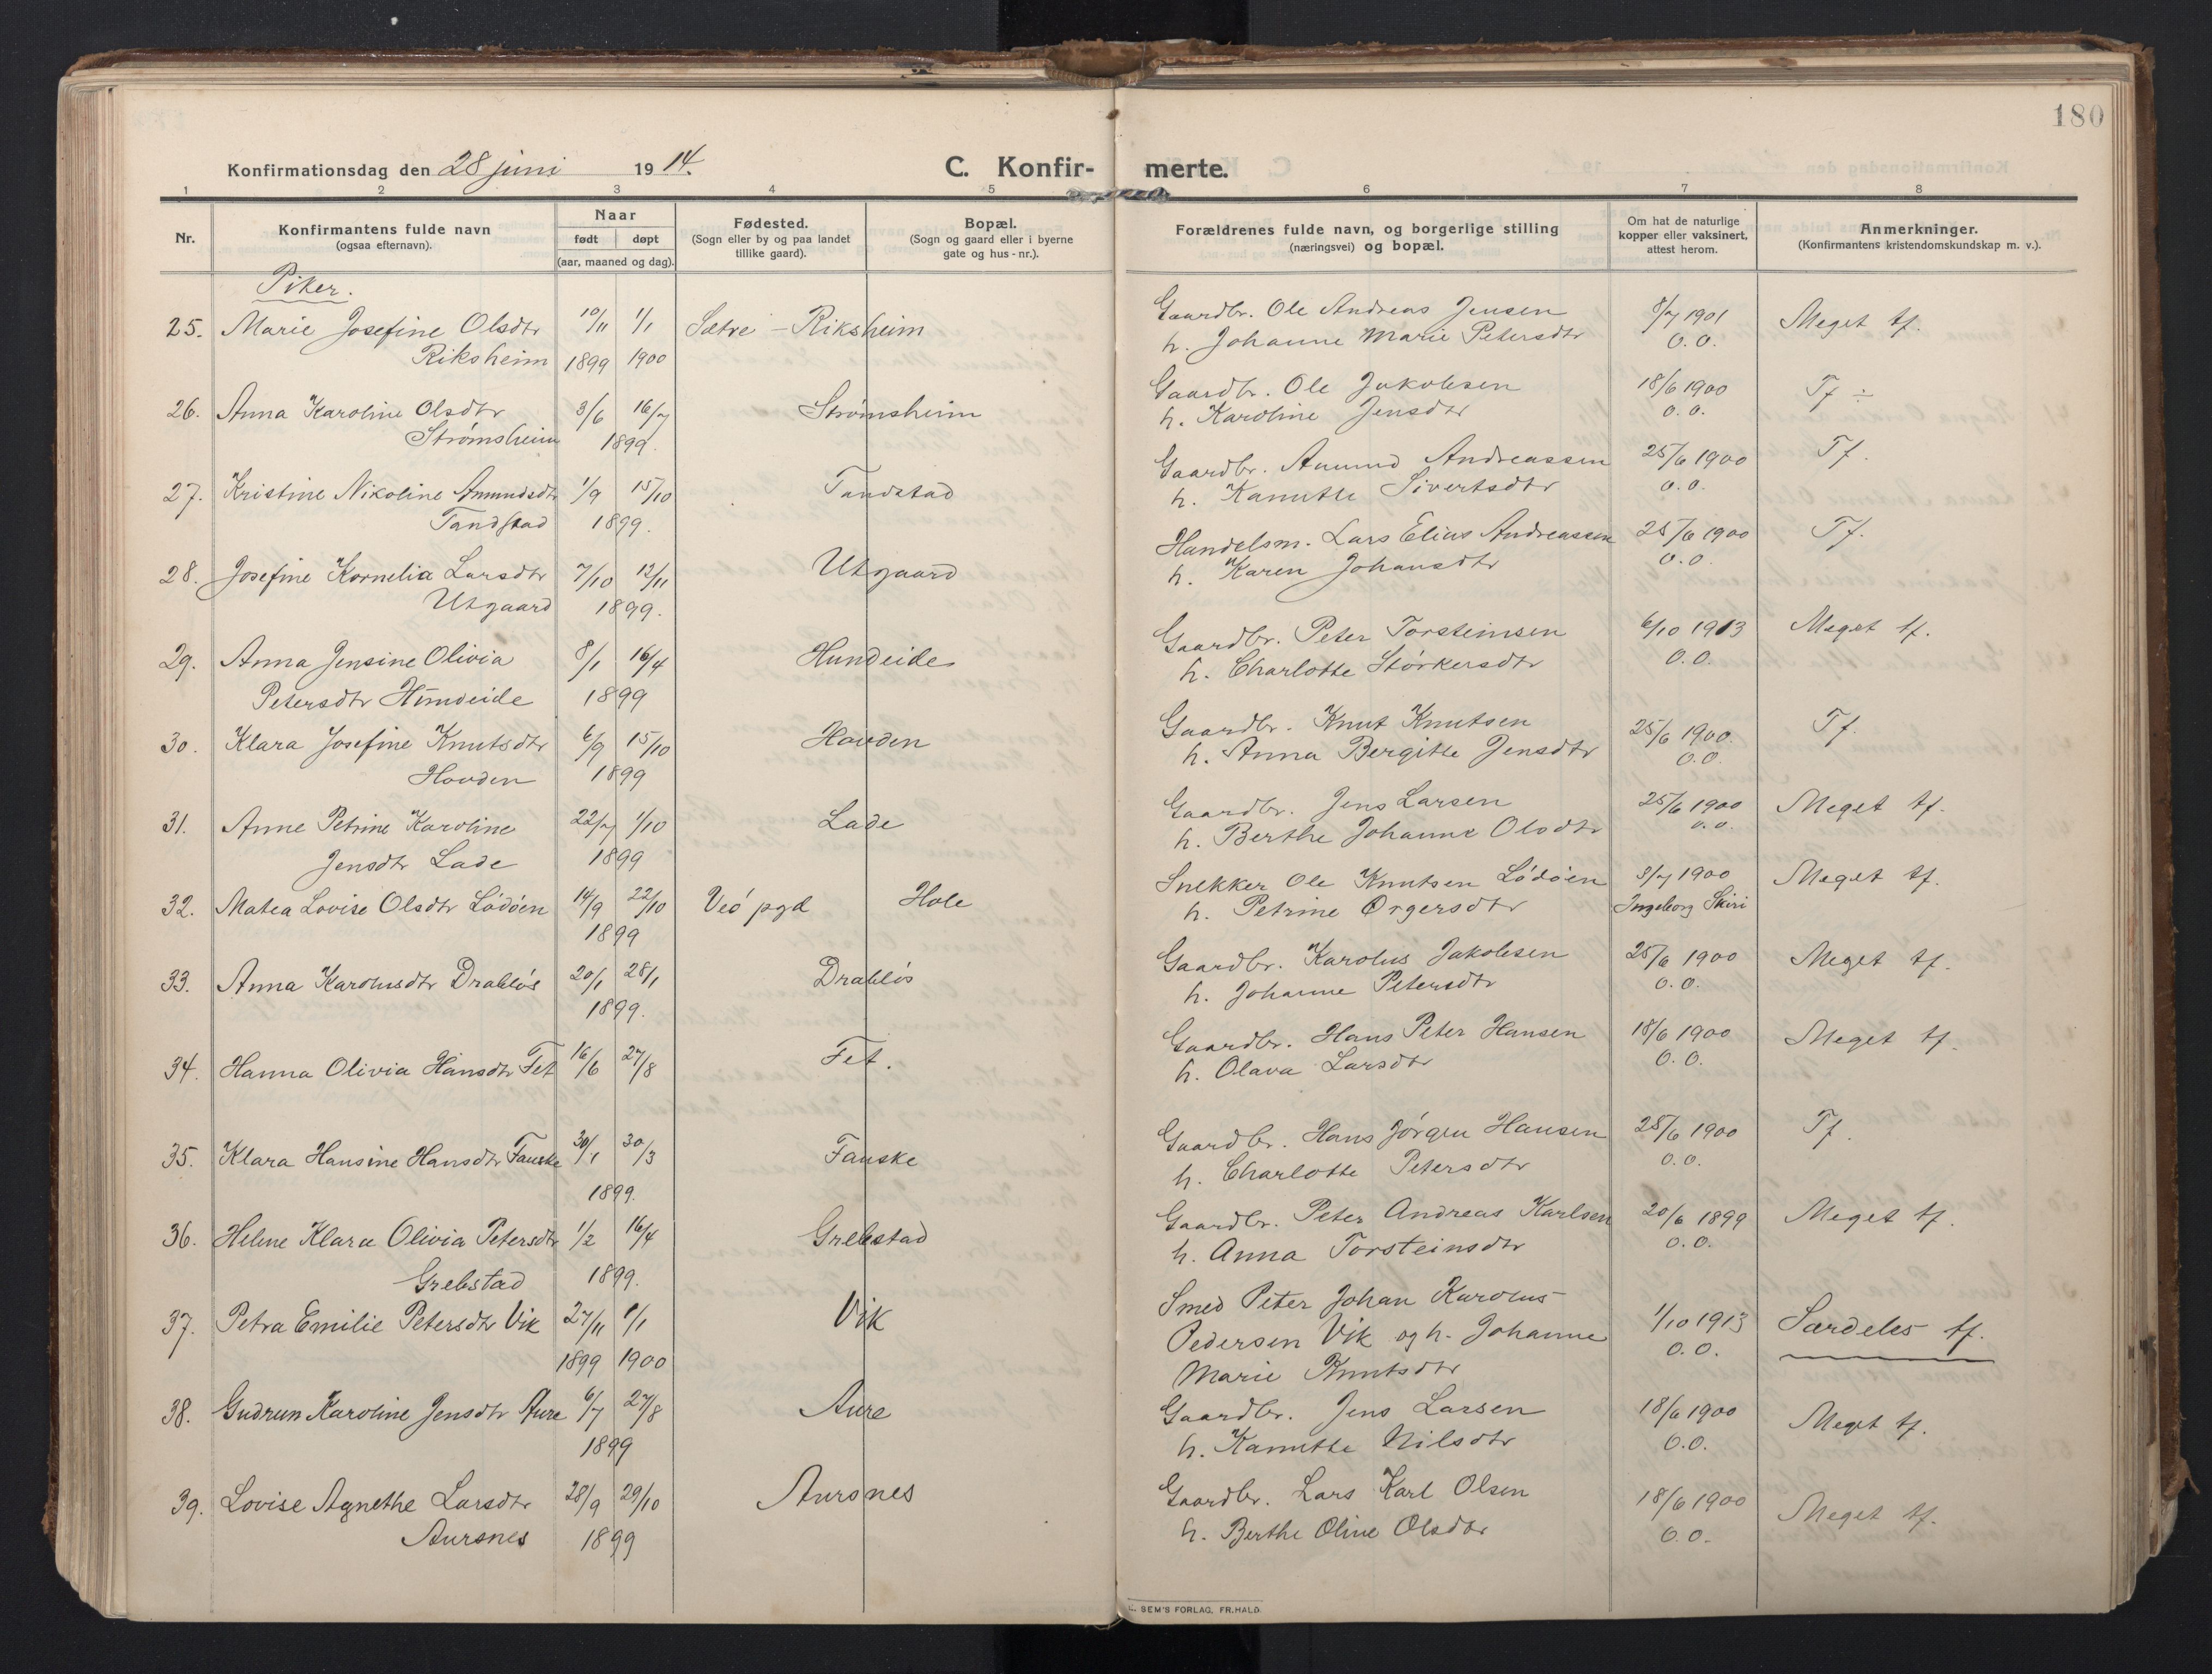 180
Konfirmationsdag den 28 juni 1914.
C. Konfirmerte.
1 2 3 4 5 6 7 8
Nr.
Konfirmantens fulde navn
(ogsaa efternavn).
Naar
født døpt
(aar, maaned og dag).
Fødested.
(Sogn eller by og paa landet
tillike gaard).
Bopæl.
(Sogn og gaard eller i byerne
gate og hus-nr.).
Forældrenes fulde navn, og borgerlige stilling
(næringsvei) og bopæl.
Om hat de naturlige
kopper eller vaksinert,
attest herom.
Anmerkninger.
(Konfirmantens kristendomskundskap m. v.).
Piker.
25. Marie Josefine Olsdtr 10/11 1/1 Sætre - Riksheim Gaardbr. Ole Andreas Jensen 8/7 1901 Meget tf.
Riksheim 1899 1900 h. Johanne Marie Petersdtr O.O.
26. Anna Karoline Olsdtr 3/6 16/7 Strømsheim Gaardbr. Ole Jakobsen 18/6 1900 Tf ÷
Strømsheim 1899. h. Karoline Jensdtr O.O.
27. Kristine Nikoline Amundsdtr 1/9 15/10 Tandstad Gaardbr. Amund Andreassen 25/6 1900 Tf.
Tandstad 1899. h. Kanutte Sivertsdtr O.O.
28. Josefine Kornelia Larsdtr 7/10 12/11 Utgaard Handelsm. Lars Elias Andreassen 25/6 1900 Tf.
Utgaard 1899. h. Karen Johansdtr O.O.
29. Anna Jensine Olivia 8/1 16/4 Hundeide Gaardbr. Peter Torsteinsen 6/10 1913 Meget tf.
Petersdtr Hundeide 1899 h. Charlotte Størkersdtr O.O.
30. Klara Josefine Knutsdtr 6/9 15/10 Hovden Gaardbr. Knut Knutsen 25/6 1900. Tf.
Hovden 1899 h. Anna Bergitte Jensdtr O.O.
31. Anne Petrine Karoline 22/7 1/10 Lade Gaardbr. Jens Larsen 25/6 1900 Meget tf.
Jensdtr Lade 1899 h. Berthe Johanne Olsdtr O.O.
32. Matea Lovise Olsdtr Lödöen 14/9 22/10 Veö pgd Hole Snekker Ole Knutsen Lödöen 3/7 1900 Meget tf.
1899 h. Petrine Orgersdtr Ingeborg Skiri
33. Anna Karolusdtr Drabløs 20/1 28/1 Drabløs Gaardbr. Karolus Jakobsen 25/6 1900 Meget tf.
1899. h. Johanne Petersdtr O.O.
34. Hanna Olivia Hansdtr Fet 16/6 27/8 Fet. Gaardbr. Hans Peter Hansen 18/6 1900 Meget tf.
h. Olava Larsdtr O.O.
35. Klara Hansine Hansdtr Fauske 30/1 30/3 Fauske Gaardbr. Hans Jörgen Hansen 25/6 1900 Tf.
1899. h. Charlotte Petersdtr O.O.
36. Helene Klara Olivia Petersdtr 1/2 16/4 Grebstad Gaardbr. Peter Andreas Karlsen 20/6 1899 Meget tf.
Grebstad 1899. h. Anna Torsteinsdtr O.O.
37. Petra Emilie Petersdtr Vik 27/11 1/1 Vik Smed Peter Johan Karolus 1/10 1913 Særdeles tf.
1899 1900 Pedersen Vik og h. Johanne O.O.
Marie Knutsdtr
38. Gudrun Karoline Jensdtr Aure 6/7 27/8 Aure Gaardbr. Jens Larsen 18/6 1900 Meget tf.
1899 h. Kanutte Nilsdtr O.O.
39. Lovise Agnethe Larsdtr 28/9 29/10 Aursnes Gaardbr. Lars Karl Olsen 18/6 1900 Meget tf.
Aursnes 1899 h. Berthe Oline Olsdtr O.O.
SEM'S FORLAG, FR.HALD